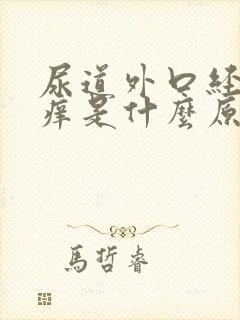 尿道外口経
痒是什麼原
馬哲睿